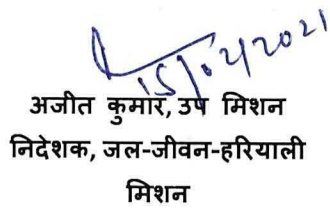 15/02/2021
अजीत कुमार, उप मिशन
निदेशक, जल-जीवन-हरियाली
मिशन